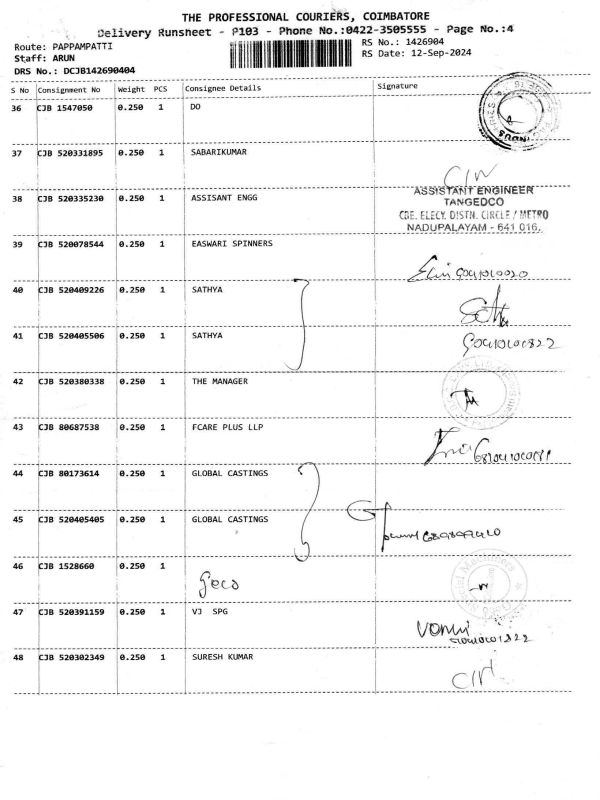 THE PROFESSIONAL COURIERS, COIMBATORE
Delivery Runsheet - P103 - Phone No.:0422-3505555 - Page No.:4
Route: PAPPAMPATTI
RS No.: 1426904
Staff: ARUN
RS Date: 12-Sep-2024
DRS No.: DCJB142690404
S No Consignment No Weight PCS Consignee Details Signature
36 CJB 1547050 0.250 1 DO
37 CJB 520331895 0.250 1 SABARIKUMAR
38 CJB 520335230 0.250 1 ASSISANT ENGG
ASSISTANT ENGINEER
TANGEDCO
CBE. ELECY. DISTN. CIRCLE / METRO
NADUPALAYAM - 641 016.
39 CJB 520078544 0.250 1 EASWARI SPINNERS
40 CJB 520409226 0.250 1 SATHYA
41 CJB 520405506 0.250 1 SATHYA
42 CJB 520380338 0.250 1 THE MANAGER
43 CJB 80687538 0.250 1 FCARE PLUS LLP
44 CJB 80173614 0.250 1 GLOBAL CASTINGS
45 CJB 520405405 0.250 1 GLOBAL CASTINGS
46 CJB 1528660 0.250 1
47 CJB 520391159 0.250 1 VJ SPG
48 CJB 520302349 0.250 1 SURESH KUMAR